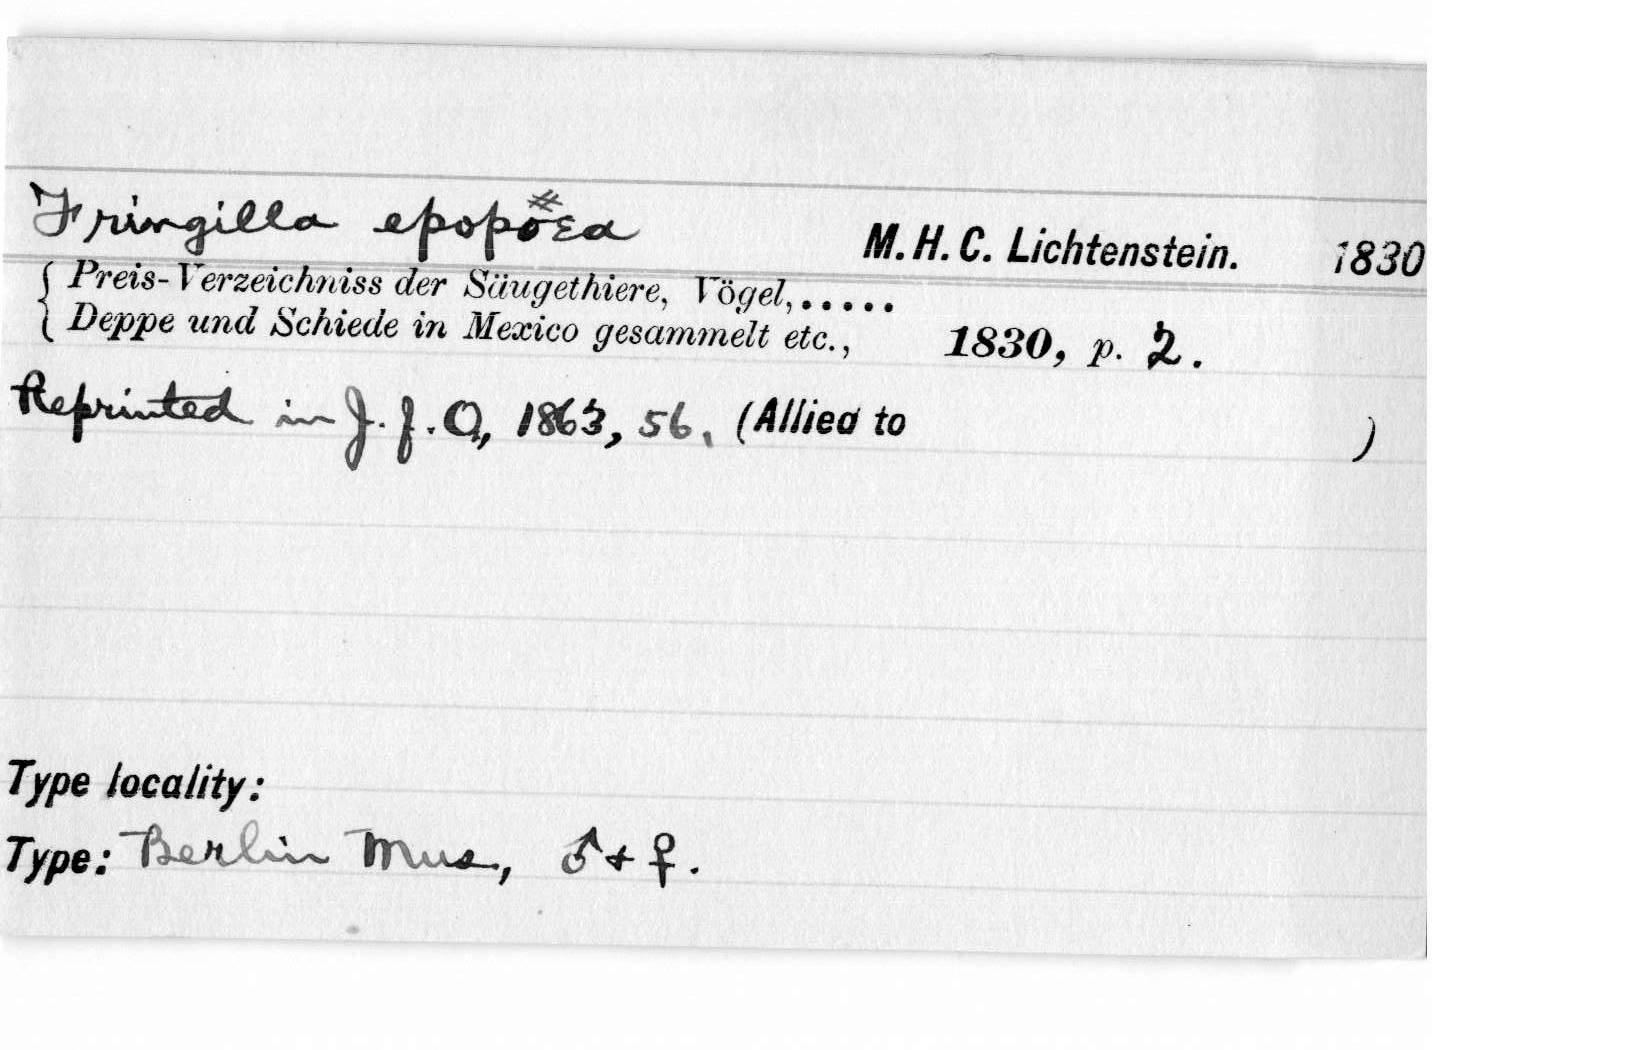 Fringilla epopœa M. H. C. Lichtenstein. 1830
{ Preis-Verzeichniss der Säugethiere, Vögel, . . . . .
Deppe und Schiede in Mexico gesammelt etc., 1830, p. 2.
Reprinted in J. f. O, 1863, 56, (Allied to )
Type locality:
Type: Berlin Mus, ♂ + ♀.